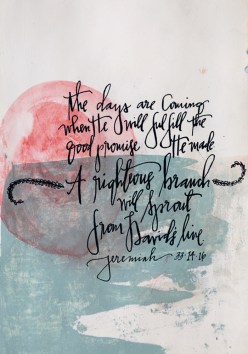 the days are coming
when He will fulfill the
good promise He made
A righteous branch
will sprout
from David's line
jeremiah 33.14-16